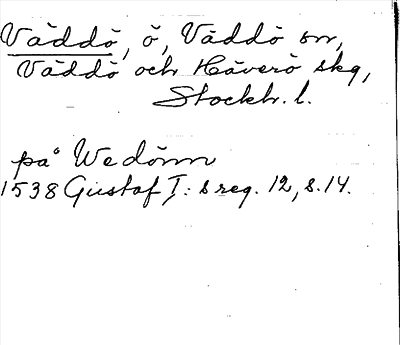 Väddö, ö, Väddö sn,
Väddö och Häverö skg,
Stockh. l.
på Wedönn
1538 Gustaf I:s reg. 12, s. 14.